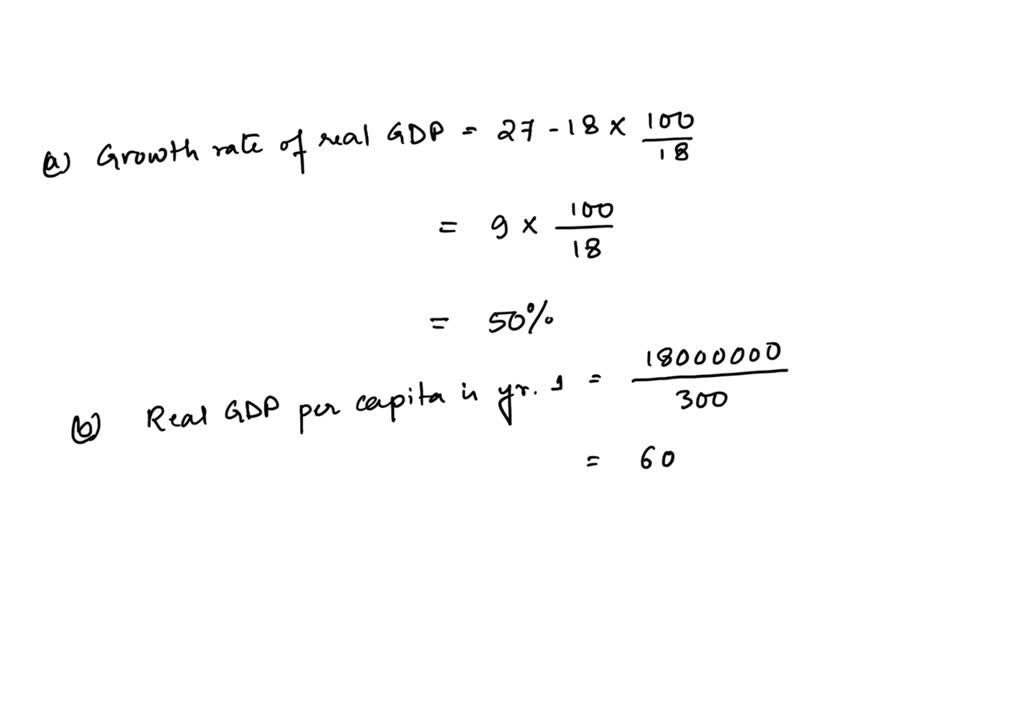 a) Growth rate of real GDP = 27 - 18 × 100/18
= 9 × 100/18
= 50%
b) Real GDP per capita in yr. 1 = 18000000/300
= 60